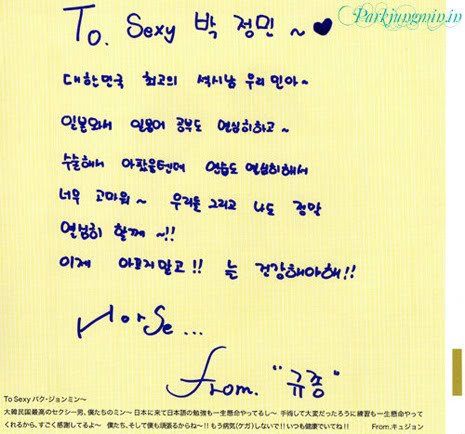 Parkjungmin.in
To. Sexy 박 정민 ~ ♥
대한민국 최고의 섹시남 우리 민아~
일본와서 일본어 공부도 열심히하고~
수술해서 아팠을텐데 연습도 열심히해서
너무 고마워~ 우리을 그리고 나도 정말
열심히 할께~!!
이제 아프지말고!! 늘 건강해야해!!
Horse...
From. "규종"
To Sexy パク・ジョンミン～
大韓民国最高のセクシー男、僕たちのミン～ 日本に来て日本語の勉強も一生懸命やってるし～ 手術して大変だったろうに練習も一生懸命やって
くれるから、すごく感謝してるよ～ 僕たち、そして僕も頑張るからね～!! もう病気(ケガ)しないで!! いつも健康でいてね!! From.キュジョン